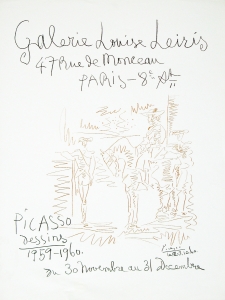 Galerie Louise Leiris
47 Rue de Monceau
PARIS - 8E
PICASSO
dessins
1959-1960.
du 30 Novembre au 31 Decembre